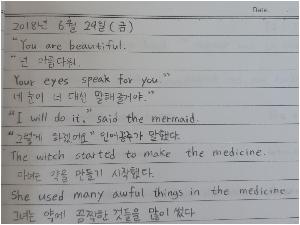 Date.
2018년 6월 29일 (금)
"You are beautiful.
"넌 아름다워.
Your eyes speak for you."
네 눈이 너 대신 말해줄거야."
"I will do it," said the mermaid.
"그렇게 하겠어요" 인어공주가 말했다.
The witch started to make the medicine.
마녀는 약을 만들기 시작했다.
She used many awful things in the medicine
그녀는 약에 끔찍한 것들을 많이 썼다